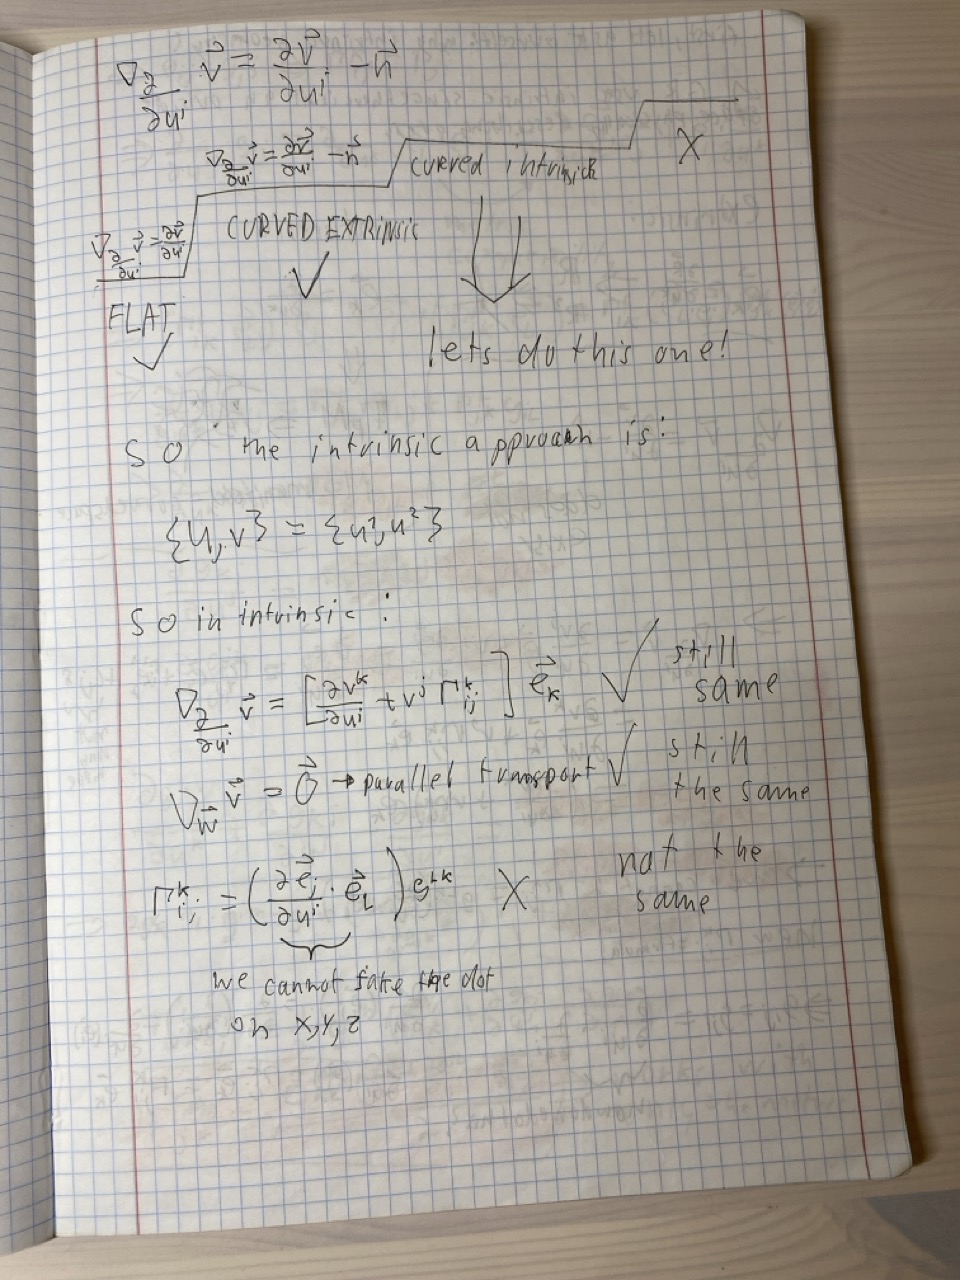 ∇_∂/∂uⁱ v⃗ = ∂v⃗/∂uⁱ − n⃗
∇_∂/∂uⁱ v⃗ = ∂v⃗/∂uⁱ − n⃗
curved intrinsic X
∇_∂/∂uⁱ v⃗ = ∂v⃗/∂uⁱ
CURVED EXTRINSIC
✓
FLAT
✓
lets do this one!
SO the intrinsic approach is:
{u,v} = {u¹,u²}
SO in intrinsic:
∇_∂/∂uⁱ v⃗ = [∂vᵏ/∂uⁱ + vʲ Γᵏᵢⱼ] e⃗ₖ ✓ still same
∇_w⃗ v⃗ = 0⃗ → parallel transport ✓ still the same
Γᵏᵢⱼ = (∂e⃗ⱼ/∂uⁱ · e⃗ₗ) gˡᵏ X not the same
we cannot take the dot
on x,y,z